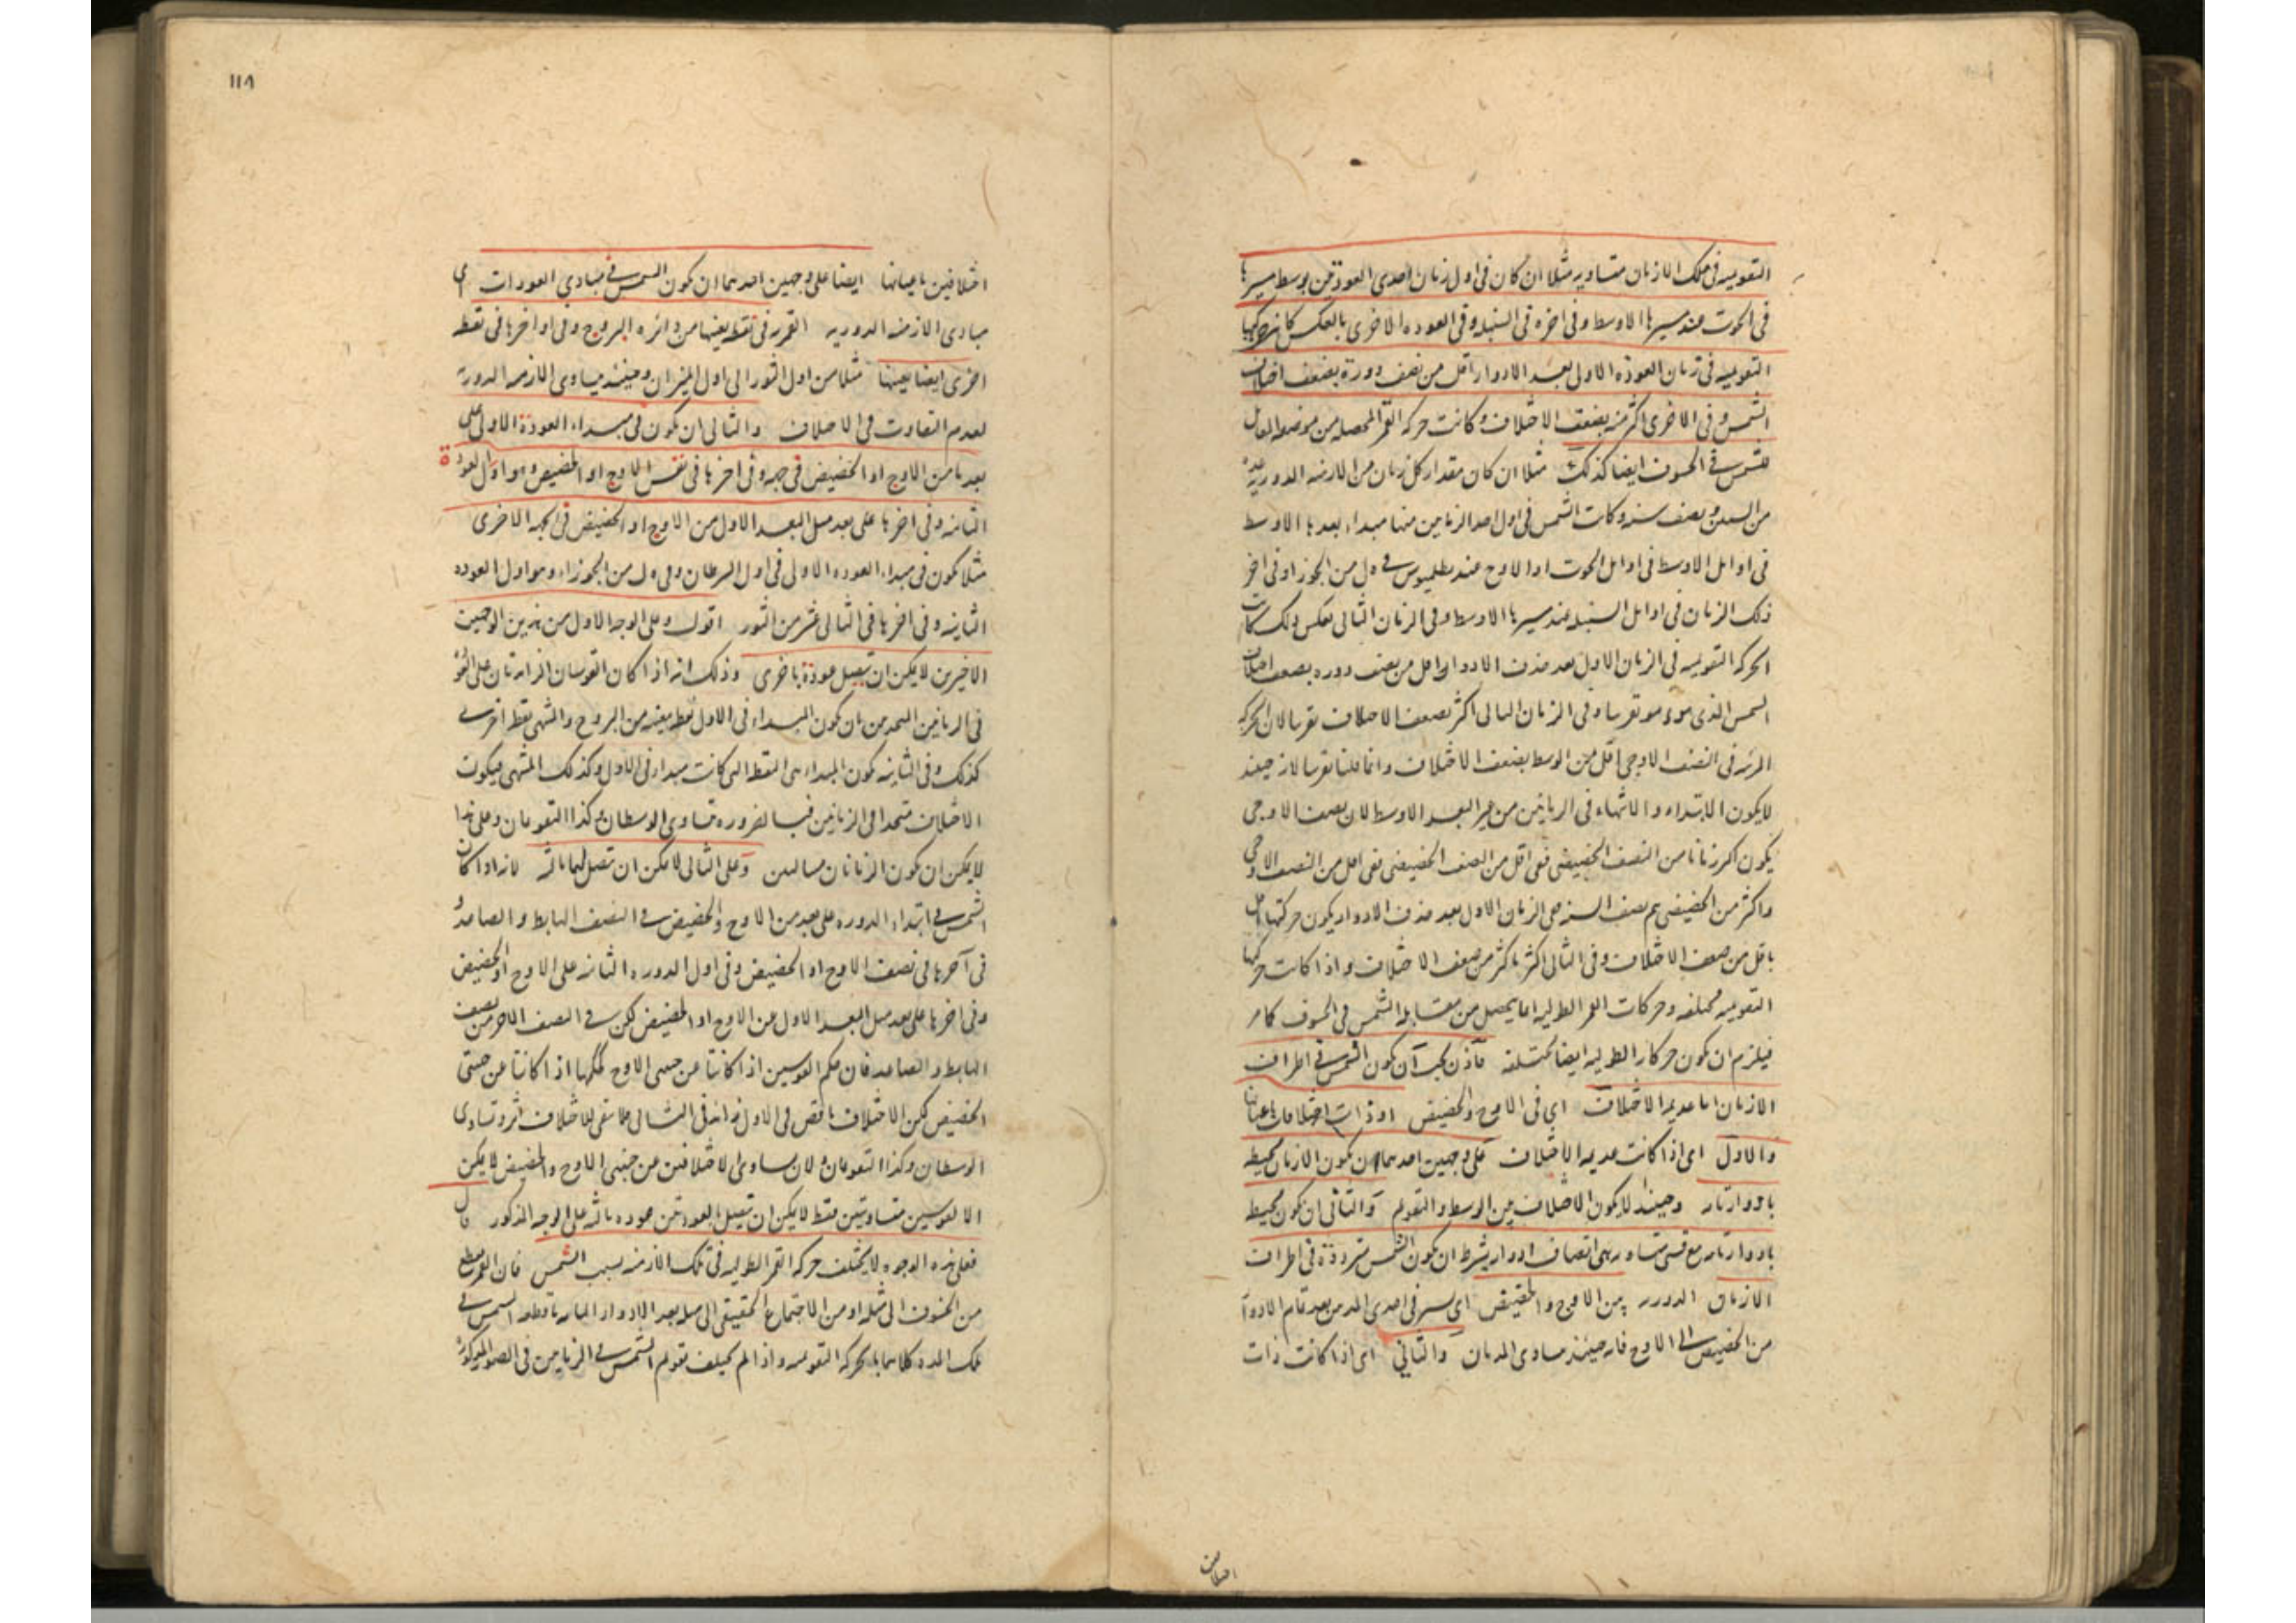 التقويميه في تلك الازمان متساويه مثلا ان كان في اول زمان احدى العودتين بوسط مسيرها
في الحوت عند مسيرها الاوسط وفي اخره في السنبله وفي العوده الاخرى بالعكس كانت حركتها
التقويميه في زمان العودة الاولى بعد الادوار اقل من نصف دورة بضعف اختلاف
الشمس وفي الاخرى اكثر منه بضعف الاختلاف وكانت حركه القمر المحصله من موضعه المقابل
للشمس في الخسوف ايضا كذلك مثلا ان كان مقدار كل زمان من الازمنه الدوريه عدة
من السنين ونصف سنه وكانت الشمس في اول احد الزمانين منها مبداء بعدها الاوسط
في اوايل الاوسط في اوايل الحوت اذ الاوج عند بطلميوس في من الجوزا وفي اخر
ذلك الزمان في اوايل السنبله عند مسيرها الاوسط وفي الزمان الثاني بعكس ذلك كانت
الحركه التقويميه في الزمان الاول بعد حذف الادوار اقل من نصف دوره بضعف اختلاف
الشمس الذي هو تقريبا وفي الزمان الثاني اكثر بضعف الاختلاف تقريبا لان الحركه
المرئيه في النصف الاوجي اقل من الوسط بضعف الاختلاف وانما قلنا تقريبا لانه حينئذ
لا يكون الابتداء والانتهاء في الزمانين من غير البعد الاوسط لان نصف الاوجي
يكون اكثر زمانا من النصف الحضيضي ففي اقل من النصف الحضيضي ففي اقل من النصف الاوجي
واكثر من الحضيضي يتم نصف السنه ففي الزمان الاول بعد حذف الادوار يكون حركتها اقل
باقل من ضعف الاختلاف وفي الثاني اكثر باكثر من ضعف الاختلاف واذا كانت حركتها
التقويميه مختلفه وحركات القمر الطوليه انما يحصل من مقابله الشمس في الخسوف كما مر
فيلزم ان يكون حركاته الطوليه ايضا مختلفه فاذن يجب ان يكون الشمس في اطراف
الازمان اما عديمه الاختلاف اي في الاوج والحضيض او ذات اختلافات باعيانها
والاول اي اذا كانت عديمه الاختلاف على وجهين احدهما ان يكون الازمان محيطه
بادوار تامه وحينئذ لا يكون الاختلاف بين الوسط والتقويم والثاني ان يكون محيطه
بادوار تامه مع قسي متساويه هي انصاف ادوار بشرط ان يكون الشمس مترددة في اطراف
الازمان الدوريه بين الاوج والحضيض اي يسير في احدى المدتين بعد تمام الادوار
من الحضيض الى الاوج فانه حينئذ يساوى المدتان والثاني اي اذا كانت ذات
اختلافين
١١٨
اختلافين باعيانها ايضا على وجهين احدهما ان يكون الشمس في مبادي العودات اي
مبادى الازمنه الدوريه القمر في نقطه بعينها من دائره البروج وفي اواخرها في نقطه
اخرى ايضا بعينها مثلا من اول الثور الى اول الميزان وحينئذ يساوى الازمنه الدوريه
لعدم التفاوت في الاختلاف والثاني ان يكون في مبداء العودة الاولى على
بعد ما من الاوج او الحضيض في جهه وفي اخرها في نفس الاوج او الحضيض وهو اول العودة
الثانيه وفي اخرها على بعد مثل البعد الاول من الاوج او الحضيض في الجهه الاخرى
مثلا يكون في مبداء العوده الاولى في اول السرطان وفي من الجوزاء وهو اول العوده
الثانيه وفي اخرها في الثاني عشر من الثور اقول وعلى الوجه الاول من هذين الوجهين
الاخيرين لا يمكن ان يتصل عودة باخرى وذلك انه اذا كان القوسان الزايدتان على العودة
في الزمانين المتحدين بان يكون المبداء في الاول نقطه معينه من البروج والمنتهى نقطه اخرى
كذلك وفي الثانيه يكون المبداء هي النقطه التي كانت مبداء في الاول وكذلك المنتهى فيكون
الاختلاف متحدا في الزمانين فبالضروره يتساوى الوسطان وكذا التقويمان وعلى هذا
لا يمكن ان يكون الزمانان متتاليين وعلى الثاني لا يمكن ان تتصل بهما ثالثه لانه اذا كان
الشمس في ابتداء الدوره على بعد من الاوج والحضيض في النصف الهابط والصاعد و
في آخرها في نصف الاوج او الحضيض وفي اول الدوره الثانيه على الاوج او الحضيض
وفي اخرها على بعد مثل البعد الاول عن الاوج او الحضيض لكن في النصف الاخر من نصف
الهابط والصاعد فان حكم القوسين اذا كانتا عن جنبتي الاوج كحكمهما اذا كانتا عن جنبتي
الحضيض لكن الاختلاف ناقص في الاول زائد في الثاني فلا يبقى للاختلاف اثر وتساوى
الوسطان وكذا التقويمان ولان تساوى الاختلافين عن جنبتي الاوج والحضيض لا يمكن
الا لقوسين متساويتين فقط لا يمكن ان تتصل بالعودتين عوده ثالثه على الوجه المذكور قال
فعلى هذه الوجوه لا يختلف حركه القمر الطوليه في تلك الازمنه بسبب الشمس فان القمر يقطع
من الخسوف الى مثله او من الاجتماع الحقيقي الى مثله بعد الادوار التامه ما قطعه الشمس في
تلك المده كلاهما بالحركه التقويميه واذا لم يختلف تقويم الشمس في الزمانين في الصور المذكورة